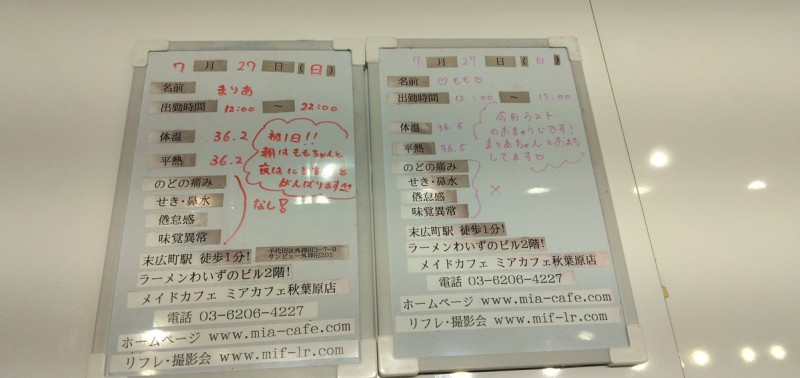 7月27日(日)
名前 まりあ
出勤時間 12:00 ~ 22:00
体温 36.2
平熱 36.2
初1日!!
朝はももちゃんと
夜は
がんばります!!
のどの痛み
せき・鼻水
倦怠感
味覚異常
なし!
末広町駅 徒歩1分!
千代田区外神田3-7-9
サンビュー外神田201
ラーメンわいずのビル2階!
メイドカフェ ミアカフェ秋葉原店
電話 03-6206-4227
ホームページ www.mia-cafe.com
リフレ・撮影会 www.mif-lr.com
7月27日(日)
名前 ♡もも♡
出勤時間 12:00 ~ 17:00
体温 36.5
平熱 36.5
今月ラスト
のおきゅうじです!
まりあちゃんとおまち
してます♡
のどの痛み
せき・鼻水
倦怠感
味覚異常
×
末広町駅 徒歩1分!
ラーメンわいずのビル2階!
メイドカフェ ミアカフェ秋葉原店
電話 03-6206-4227
ホームページ www.mia-cafe.com
リフレ・撮影会 www.mif-lr.com